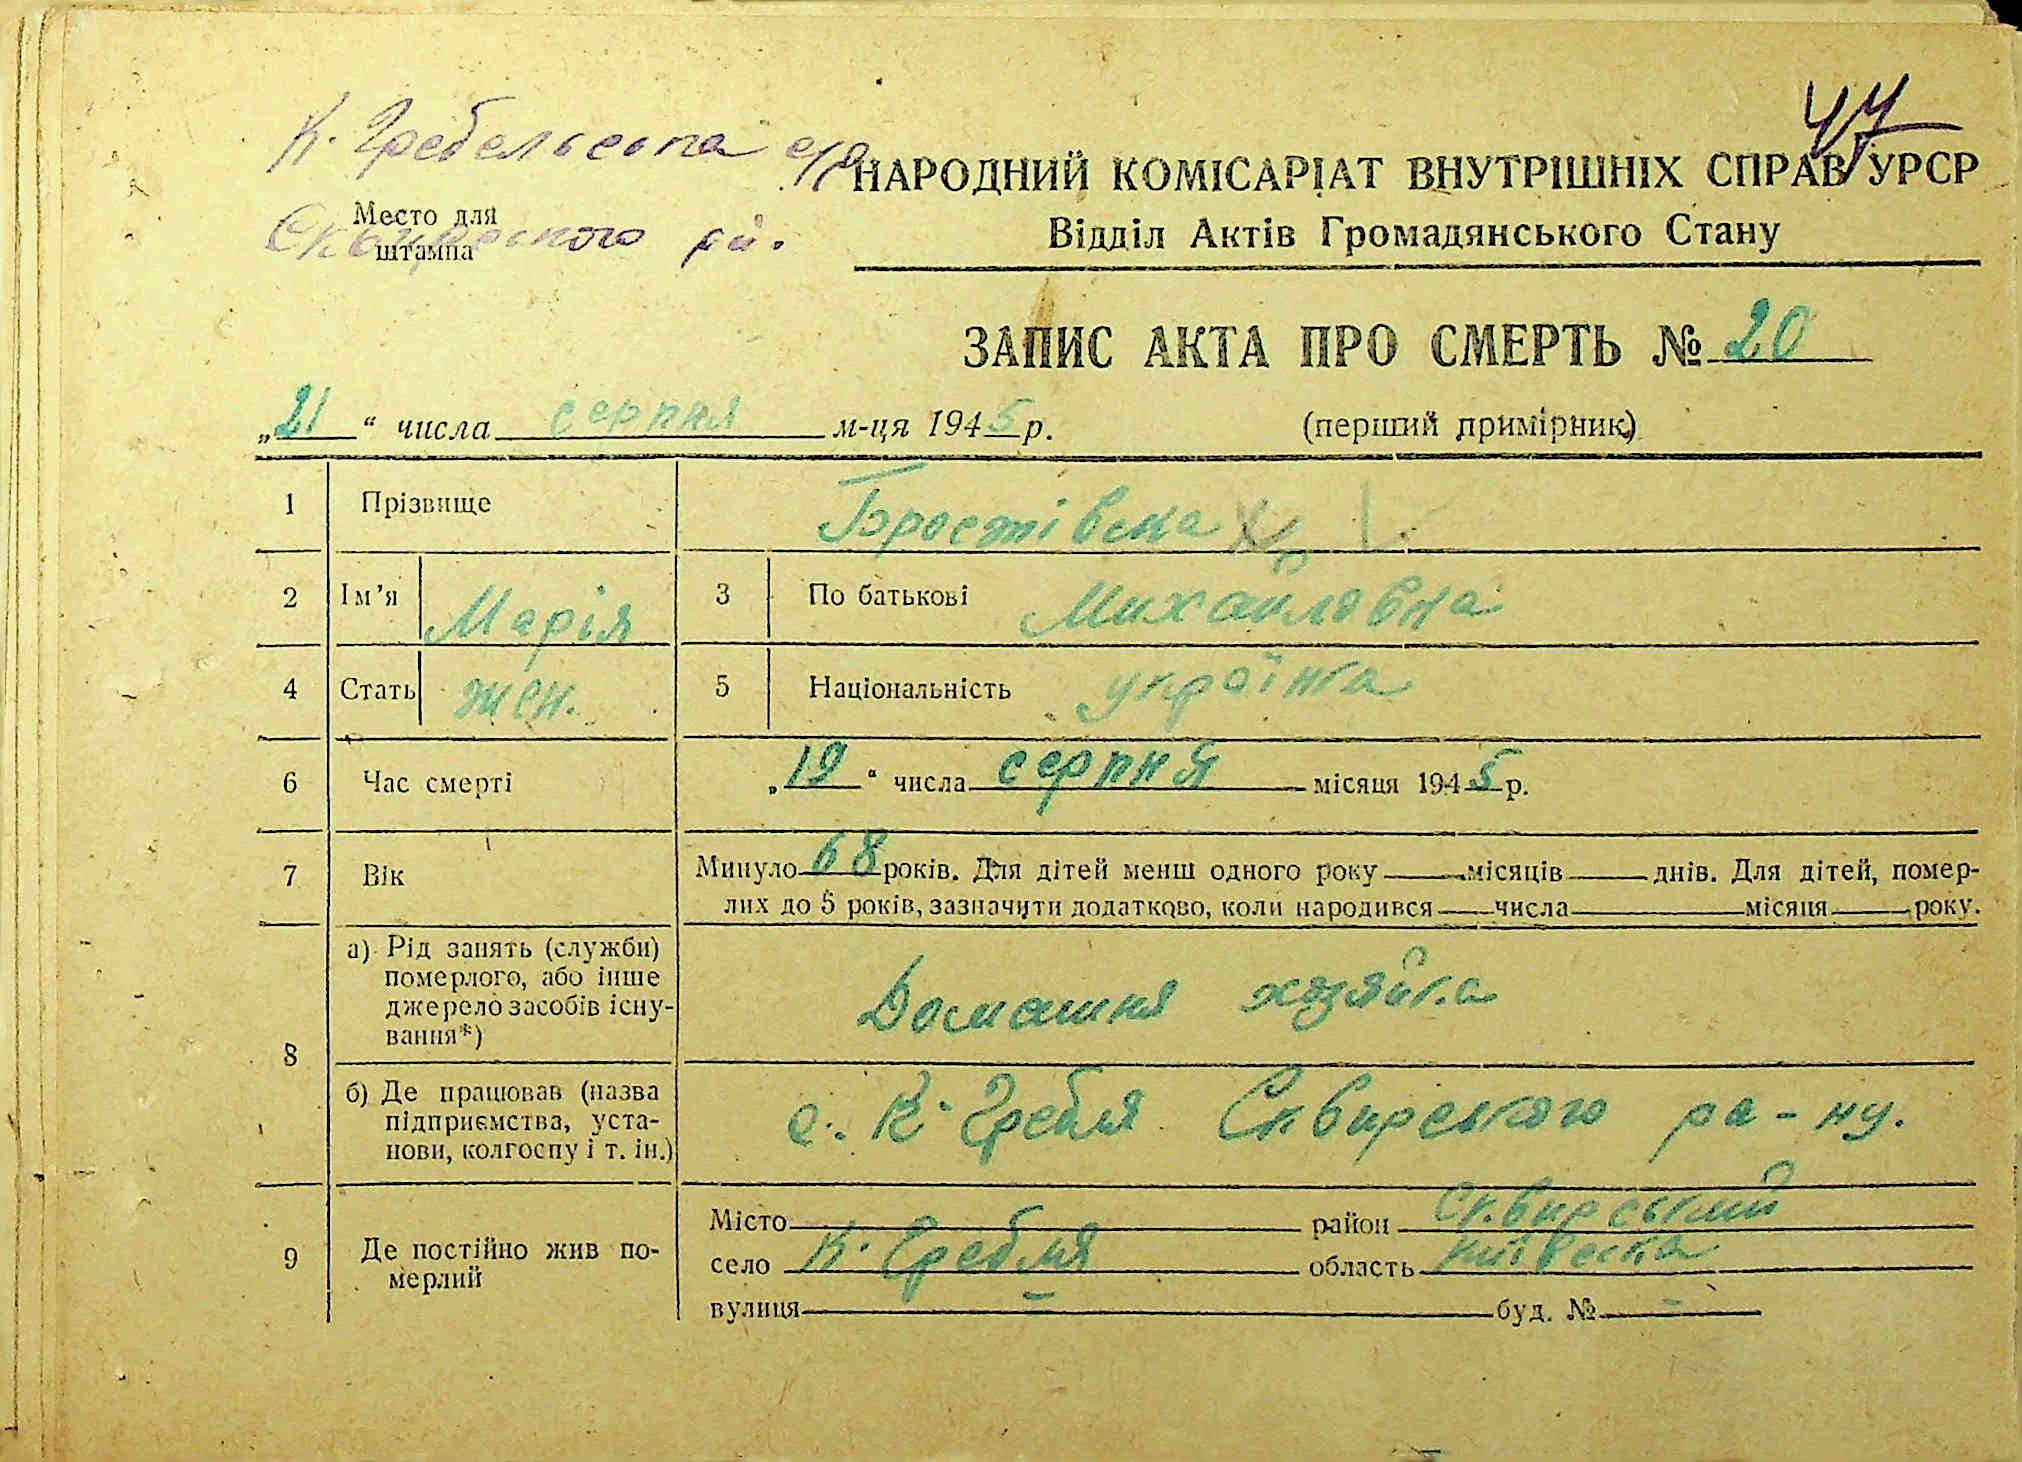 47
К. Гребельська с/р
Сквирського р-н.
Место для
штампа
НАРОДНИЙ КОМІСАРІАТ ВНУТРІШНІХ СПРАВ УРСР
Відділ Актів Громадянського Стану
ЗАПИС АКТА ПРО СМЕРТЬ № 20
„21“ числа серпня м-ця 1945 р. (перший примірник)
1 Прізвище Бростівська
2 Ім’я Марія 3 По батькові Михайловна
4 Стать жен. 5 Національність українка
6 Час смерті „19“ числа серпня місяця 1945 р.
7 Вік Минуло 68 років. Для дітей менш одного року місяців днів. Для дітей, помер-
лих до 5 років, зазначити додатково, коли народився числа місяця року.
8 а) Рід занять (служби)
померлого, або інше
джерело засобів існу-
вання*)
Домашня хозяйка
б) Де працював (назва
підприємства, уста-
нови, колгоспу і т. ін.)
с. К. Гребля Сквирського ра-ну.
9 Де постійно жив по-
мерлий
Місто район Сквирський
село К. Гребля область київська
вулиця – буд. № –